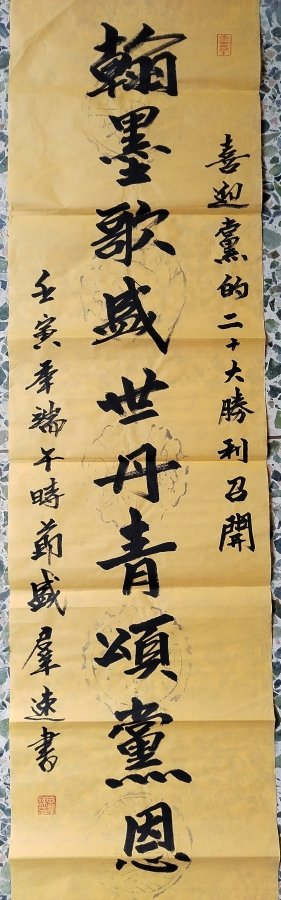 喜迎黨的二十大勝利召開
翰墨歌盛世丹青頌黨恩
壬寅季端午時節盛羣速書